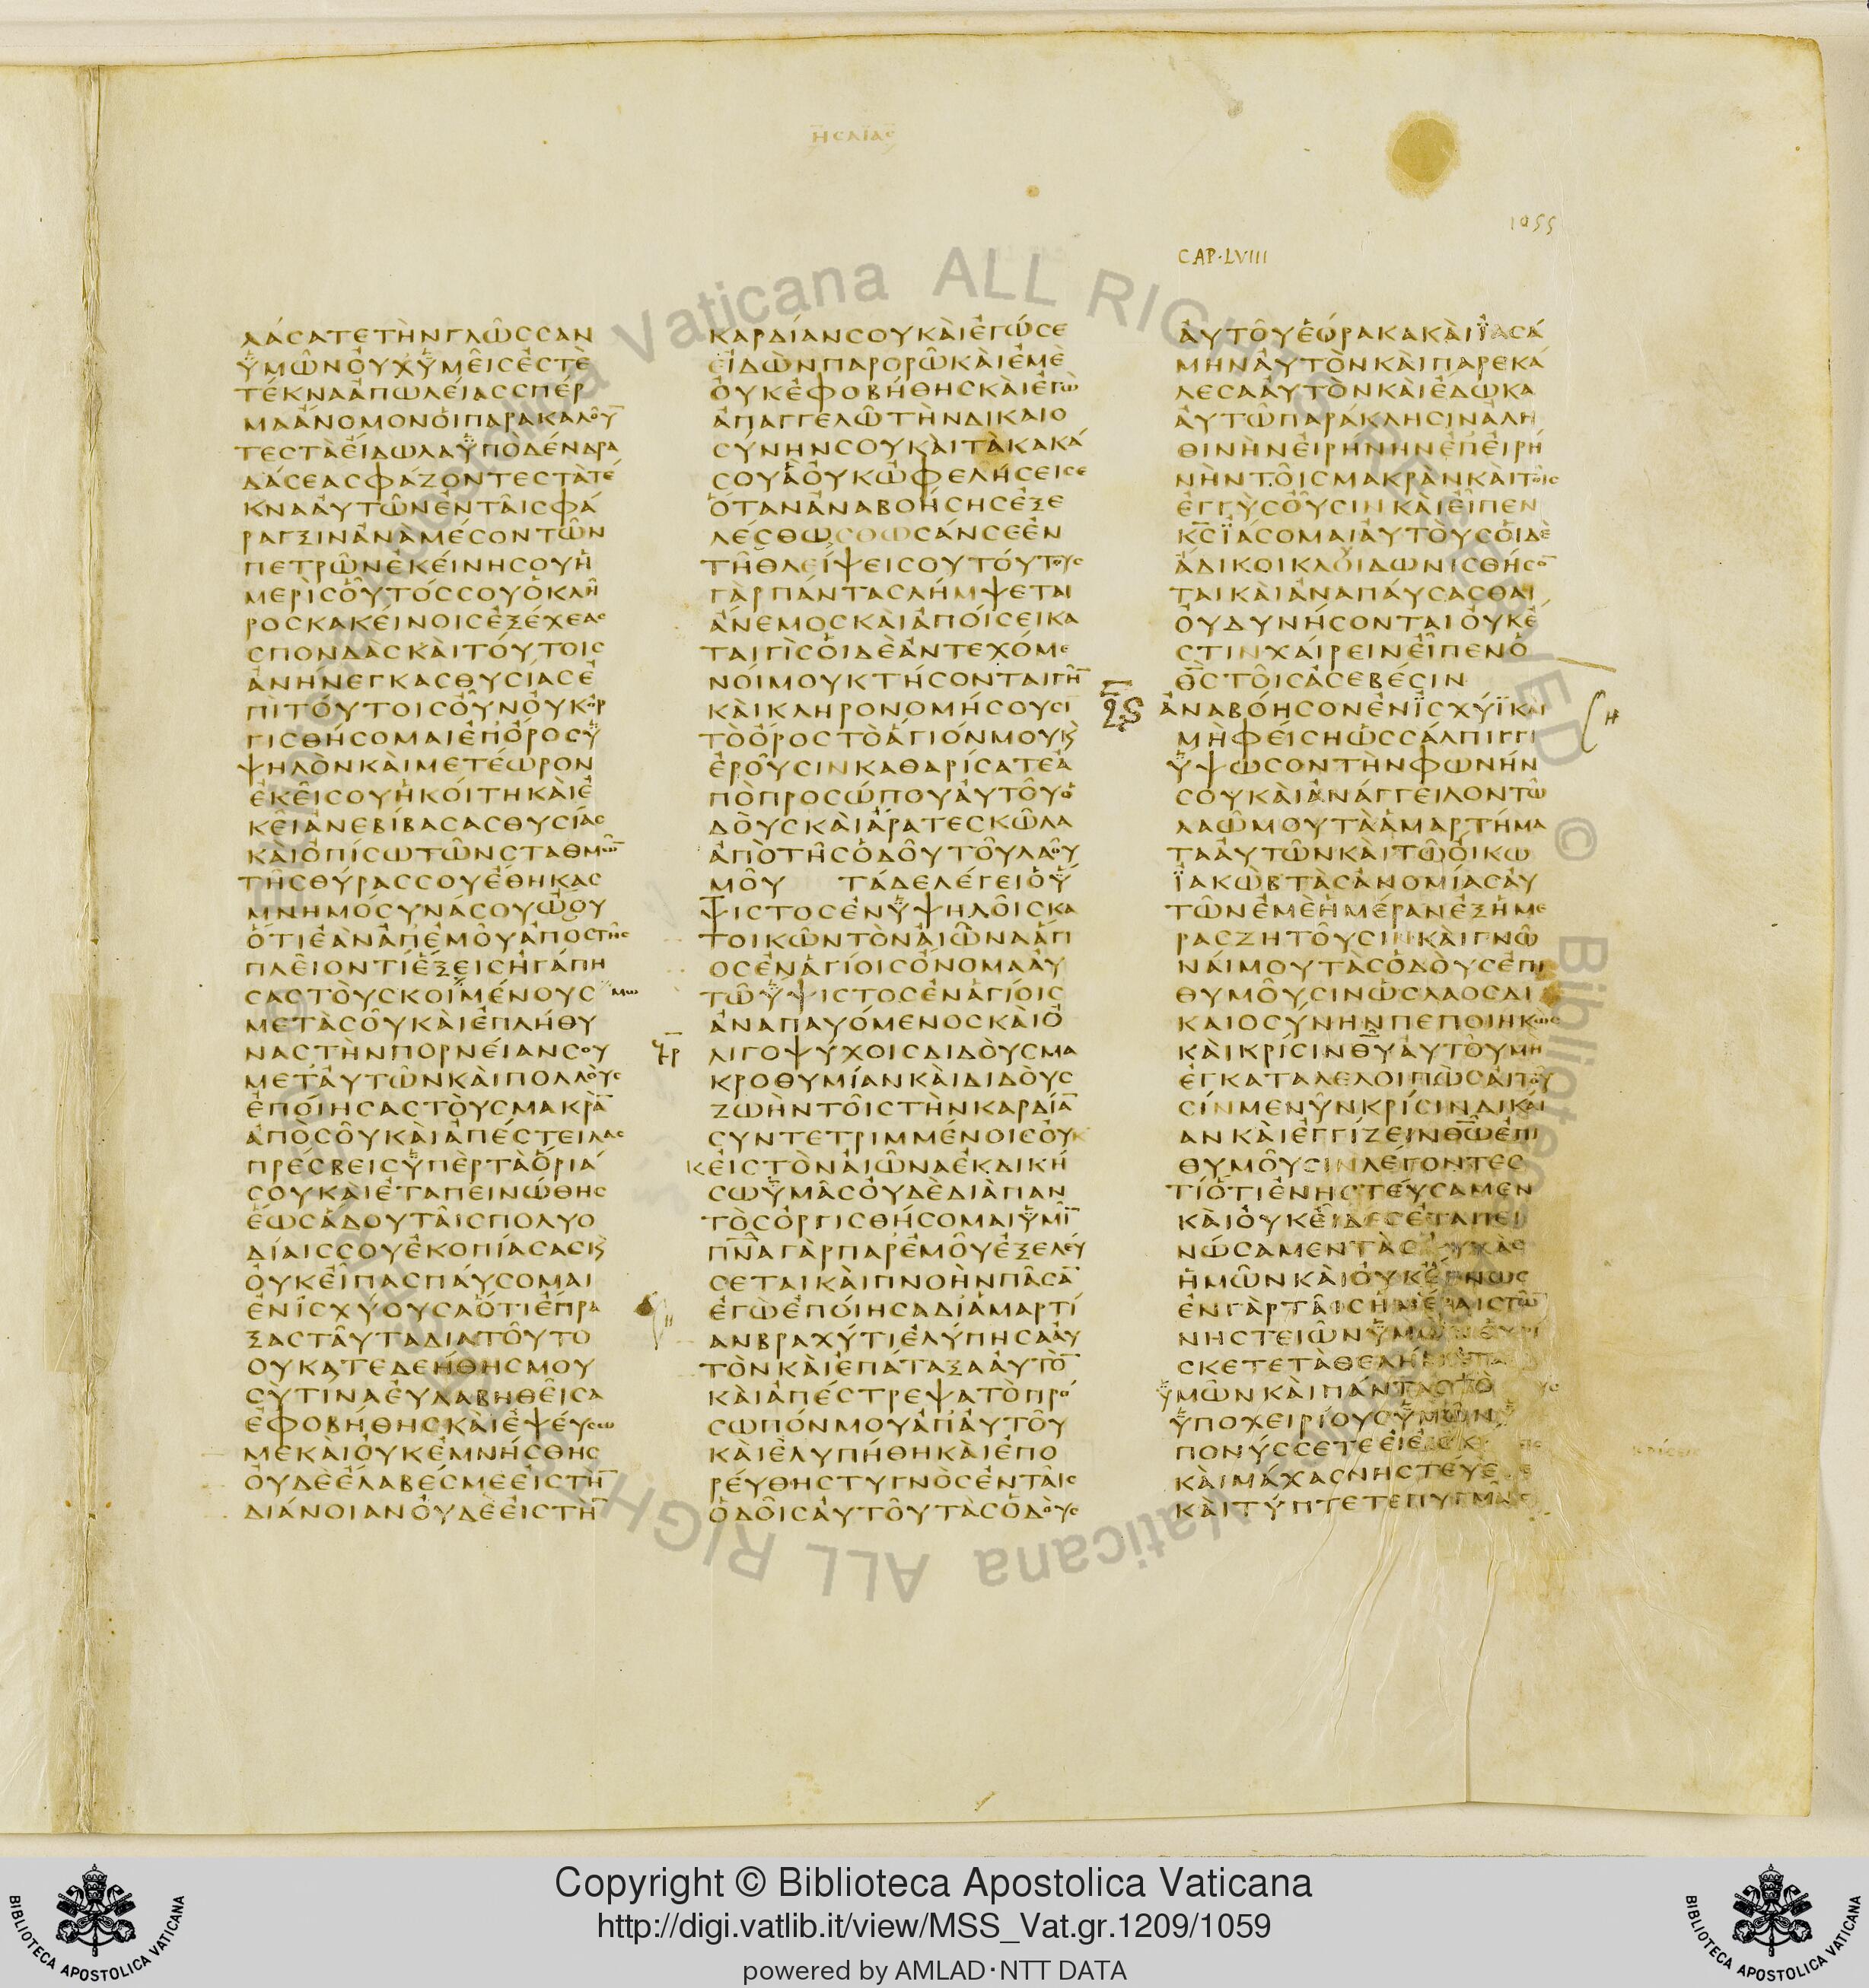 ΗΣΑΪΑΣ
1055
CAP·LVIII
λάσατετὴνγλῶσσαν
ὑμῶνὀυχὑμεῖςἐστὲ
τέκναἀπωλείασσπέρ
μαἄνομονὁιπαρακαλοῦ
τεστὰἐίδωλαὑποδένδρα
δάσεασφάζοντεστὰτέ
κνααὐτῶνἐνταῖσφά
ραγξινἀνὰμέσοντῶν
πετρῶνἐκείνησουἡ
μερὶσοὗτόσσουὁκλῆ
ροσκακείνοισἐξέχεας
σπονδὰσκαὶτούτοις
ἀνήνεγκασθυσίασἐ
πιτούτοισοὖνοὐκὀρ
γισθήσομαιἐπ᾽ὄροςὑ
ψηλὸνκαὶμετέωρον
ἐκεῖσουἡκοίτηκαὶἐ
κεῖἀνεβίβασασθυσίας
καὶὀπίσωτῶνσταθμῶ̅
τῆσθύρασσουἔθηκας
μνημόσυνάσουᾤου
ὅτιἐὰνἀπ᾽ἐμοῦἀποστῆς
πλεῖοντιἕξεισἠγάπη
σαστοὺσκοιμένουσμω
μετὰσοῦκαὶἐπλήθυ
ναστὴνπορνείανσου
μετ᾽αὐτῶνκαὶπολλοὺς
ἐποίησαστοὺσμακρὰ̅
ἀπὸσοῦκαὶἀπέστειλας
πρέσβεισὑπὲρτὰὅριά
σουκαὶἐταπεινώθης
ἕωσᾅδουταῖσπολυο
δίαισσουἐκοπίασασκ̀
οὐκεἶπασπαύσομαι
ἐνισχύουσαὅτιἔπρα
ξασταῦταδιατοῦτο
ουκατεδεήθησμου
σὺτιναεὐλαβηθεῖσα
ἐφοβήθησκαὶἐψεύσω
μεκαὶοὐκἐμνήσθης
οὐδὲἔλαβέσμεεἰστὴ̅
διάνοιανοὐδὲεἰστὴ̅
καρδίανσουκαὶἐγώσε
ἐιδὼνπαρορῶκαὶἐμὲ
οὐκἐφοβήθησκαὶἐγὼ
ἀπαγγελῶτὴνδικαιο
σύνηνσουκαὶτὰκακά
σουἃοὐκὠφελήσεισε
ὅτανἀναβοήσησἐξε
λέσθωσοωσάνσεἐν
τῆθλείψεισουτούτους
γὰρπάνταςλήμψεται
ἄνεμοσκαὶἀποίσεικα
ταιγὶσὁιδὲἀντεχόμε
νοίμουκτήσονταιγῆ̅
καὶκληρονομήσουσι
τὸὄροστὸἅγιόνμουκ̀
ἐροῦσινκαθαρίσατεἀ
πὸπροσώπουαὐτοῦὁ
δοὺσκαὶἄρατεσκῶλα
ἀπὸτῆσὁδοῦτοῦλαοῦ
μοῦ τάδελέγειὁὕ
ψιστοσἐνὑψηλοῖσκα
τοικῶντὸναἰῶναἅγι
οσἐνἁγίοισὄνομααὐ
τῶὕψιστοσἐνἁγίοις
ἀναπαυόμενοσκαὶὀ
λιγοψύχοισδιδοὺσμα
κροθυμίανκαὶδιδοὺς
ζωὴντοῖστὴνκαρδία̅
συντετριμμένοισοὐκ
κεἰστὸναἰῶναἐκδική
σωὑμᾶσοὐδὲδιὰπαν
τὸσὀργισθήσομαιὑμῖ̅
πν̅αγὰρπαρ᾽ἐμοῦἐξελεύ
σεταικαὶπνοὴνπᾶσα̅
ἐγὼἐποίησαδι᾽ἁμαρτί
ανβραχύτιἐλύπησααὐ
τὸνκαὶἐπάταξααὐτὸ̅
καὶἀπέστρεψατὸπρό
σωπόνμουἀπ᾽αὐτοῦ
καὶἐλυπήθηκαὶἐπο
ρεύθηστυγνὸσἐνταῖς
ὁδοῖσαὐτοῦτὰσὁδοὺς
αὐτοῦἑώρακακαὶϊασά
μηναὐτὸνκαὶπαρεκά
λεσααὐτὸνκαὶἔδωκα
αὐτῶπαράκλησινἀλη
θινὴνεἰρήνηνἐπ᾽εἰρή
νὴντοῖσμακρὰνκαὶτοῖς
ἐγγὺσοὖσινκαὶεἶπεν
κ̅ς̅ϊάσομαιαὐτοὺσὁιδὲ
ἄδικοικλυδωνισθήσο̅
ταικαὶἀναπαύσασθαι
οὐδυνήσονταιοὐκἔ
στινχαίρεινεἶπενὁ
θ̅ς̅τοῖσἀσεβέσιν
ἀναβόησονἐνϊσχύϊκαὶ
μὴφείσηὡσσάλπιγγι
ὕψωσοντὴνφωνήν
σουκαὶἀνάγγειλοντῶ
λαῶμουτὰἁμαρτήμα
τααὐτῶνκαὶτῶοἴκω
ϊακὼβτὰσἀνομίασαὐ
τῶνἐμὲἡμέρανἐξἡμέ
ρασζητοῦσινκαὶγνῶ
ναίμουτὰσὁδοὺσἐπι
θυμοῦσινὡσλαοσδι
καιοσύνηνπεποιηκὼς
καὶκρίσινθ̅υ̅αὐτοῦμὴ
ἐγκαταλελοιπὼσαἰτοῦ
σίνμενῦνκρίσινδικαί
ανκαὶἐγγίζεινθ̅ω̅ἐπι
θυμοῦσινλέγοντες
τίὅτιἐνηστεύσαμεν
καὶοὐκεἶδεσἐταπει
νώσαμεντὰσψυχὰς
ἡμῶνκαὶοὐκἔγνως
ἐνγὰρταῖσἡμέραιστῶ̅
νηστειῶνὑμῶνεὑρί
σκετετὰθελή
ὑμῶνκαὶπάντας
ὑποχειρίουσὑμῶν
πονύσσετεεἰ
καὶμάχασνηστεύετε
καὶτύπτετεπυγμαῖς
Copyright © Biblioteca Apostolica Vaticana
http://digi.vatlib.it/view/MSS_Vat.gr.1209/1059
powered by AMLAD·NTT DATA
BIBLIOTECA APOSTOLICA VATICANA
BIBLIOTECA APOSTOLICA VATICANA